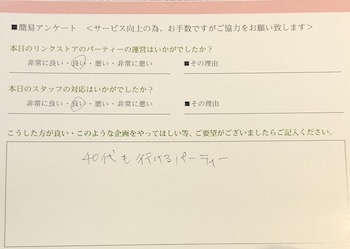 ■簡易アンケート <サービス向上の為、お手数ですがご協力をお願い致します>
本日のリンクストアのパーティーの運営はいかがでしたか?
非常に良い・良い・悪い・非常に悪い ■その理由
本日のスタッフの対応はいかがでしたか?
非常に良い・良い・悪い・非常に悪い ■その理由
こうした方が良い・このような企画をやってほしい等、ご要望がございましたらご記入ください。
40代も行けるパーティー